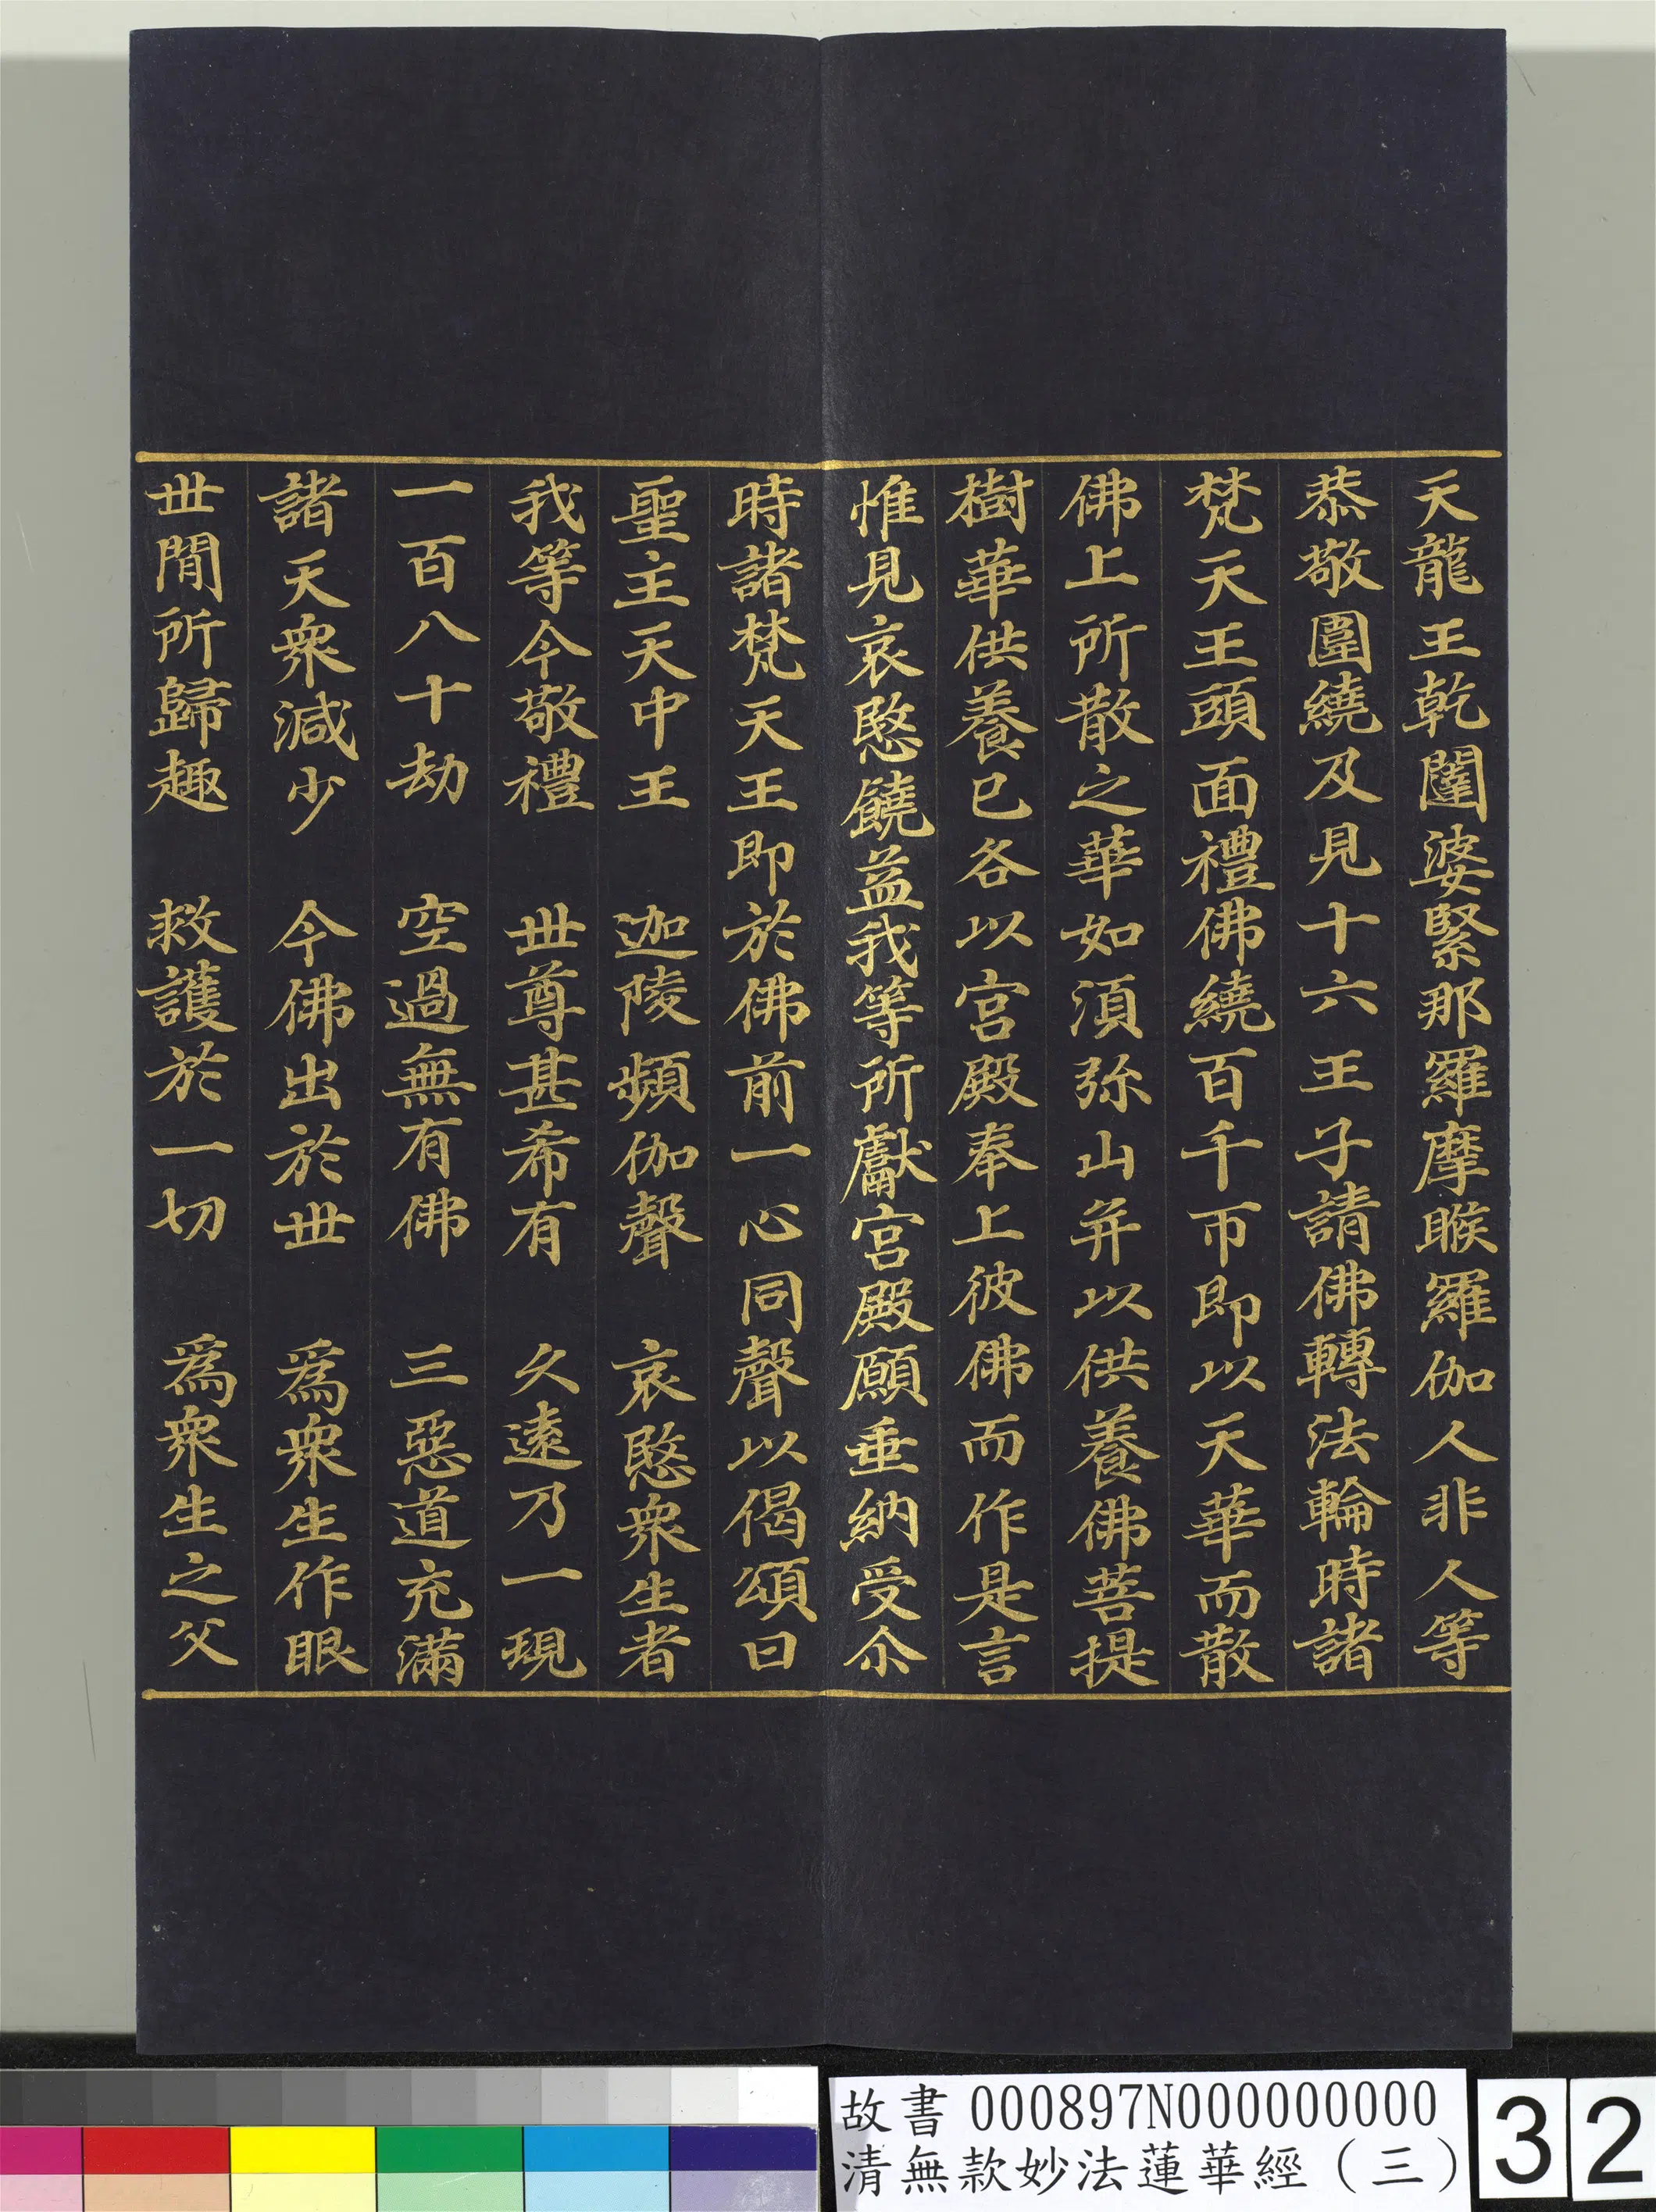 天龍王乾闥婆緊那羅摩睺羅伽人非人等
恭敬圍繞及見十六王子請佛轉法輪時諸
梵天王頭面禮佛繞百千帀即以天華而散
佛上所散之華如湏弥山并以供養佛菩提
樹華供養已各以宮殿奉上彼佛而作是言
惟見哀愍饒益我等所獻宮殿願垂納受尒
時諸梵天王即於佛前一心同聲以偈頌曰
聖主天中王　迦陵頻伽聲　哀愍衆生者
我等今敬禮　世尊甚希有　久遠乃一現
一百八十劫　空過無有佛　三惡道充滿
諸天衆減少　今佛出於世　爲衆生作眼
世閒所歸趣　救護於一切　爲衆生之父
故書 000897N000000000
清無款妙法蓮華經（三）
32